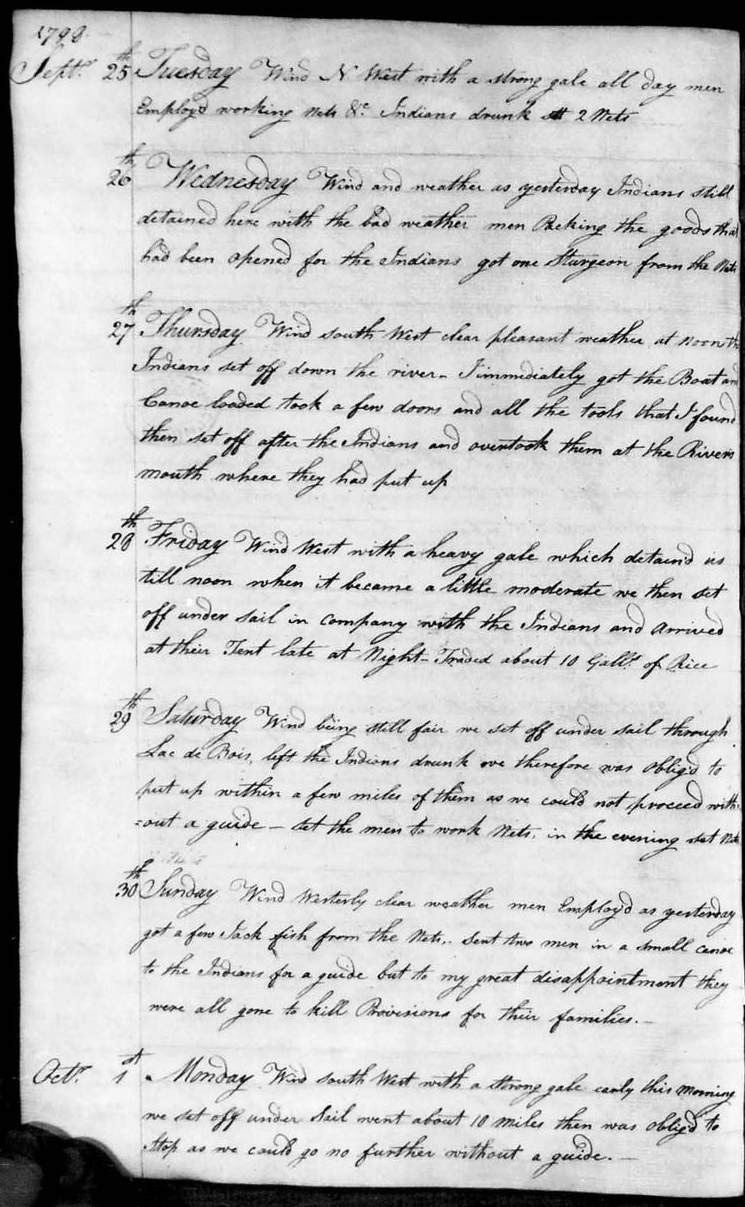 1798
Septr. 25th Tuesday Wind N West with a strong gale all day men
Employd working Nets &c. Indians drunk set 2 Nets
26th Wednesday Wind and weather as yesterday Indians still
detained here with the bad weather men Packing the goods that
had been opened for the Indians got one Sturgeon from the Nets
27th Thursday Wind south West clear pleasant weather at noon the
Indians set off down the river - I immediately got the Boat and
Canoe loaded took a few doors and all the tools that I found
then set off after the Indians and overtook them at the Rivers
mouth where they had put up
28th Friday Wind West with a heavy gale which detaind us
till noon when it became a little moderate we then set
off under sail in company with the Indians and Arrived
at their Tent late at Night - Traded about 10 Galls. of Rice
29th Saturday Wind being still fair we set off under sail through
Lac de Bois, left the Indians drunk we therefore was obligd to
put up within a few miles of them as we could not proceed with=
=out a guide - set the men to work Nets, in the evening set Nets
30th Sunday Wind Westerly clear weather men Employd as yesterday
got a few Jack fish from the Nets,. sent two men in a small canoe
to the Indians for a guide but to my great disappointment they
were all gone to kill Provisions for their families. -
Octr. 1st Monday Wind south West with a strong gale early this morning
we set off under sail went about 10 miles then was obligd to
stop as we could go no further without a guide. -